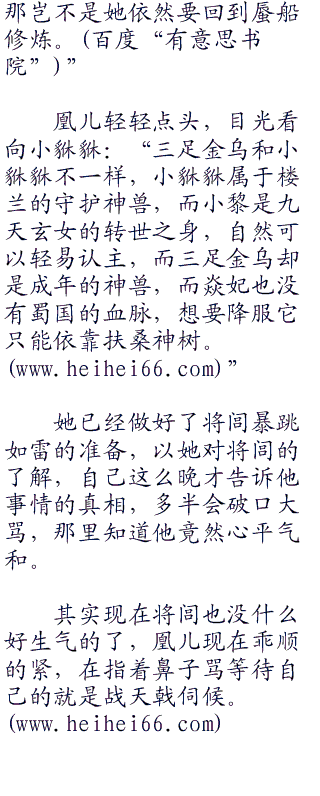 那岂不是她依然要回到蜃船
修炼。(百度“有意思书
院”)”
凰儿轻轻点头，目光看
向小貅貅：“三足金乌和小
貅貅不一样，小貅貅属于楼
兰的守护神兽，而小黎是九
天玄女的转世之身，自然可
以轻易认主，而三足金乌却
是成年的神兽，而焱妃也没
有蜀国的血脉，想要降服它
只能依靠扶桑神树。
(www.heihei66.com)”
她已经做好了将闾暴跳
如雷的准备，以她对将闾的
了解，自己这么晚才告诉他
事情的真相，多半会破口大
骂，那里知道他竟然心平气
和。
其实现在将闾也没什么
好生气的了，凰儿现在乖顺
的紧，在指着鼻子骂等待自
己的就是战天戟伺候。
(www.heihei66.com)